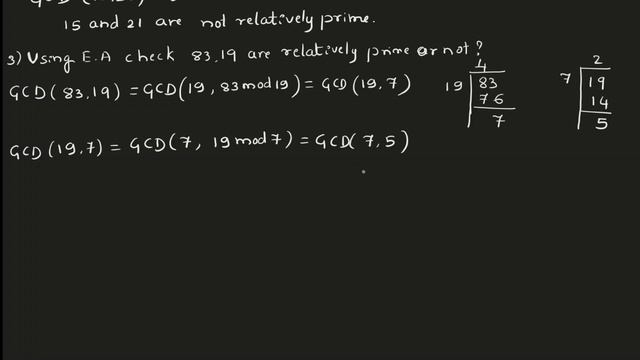 15 and 21 are not relatively prime.
3) Using E.A check 83,19 are relatively prime or not?
GCD(83,19) = GCD(19, 83 mod 19) = GCD(19,7)
4
19 83
76
7
2
7 19
14
5
GCD(19,7) = GCD(7, 19 mod 7) = GCD(7,5)